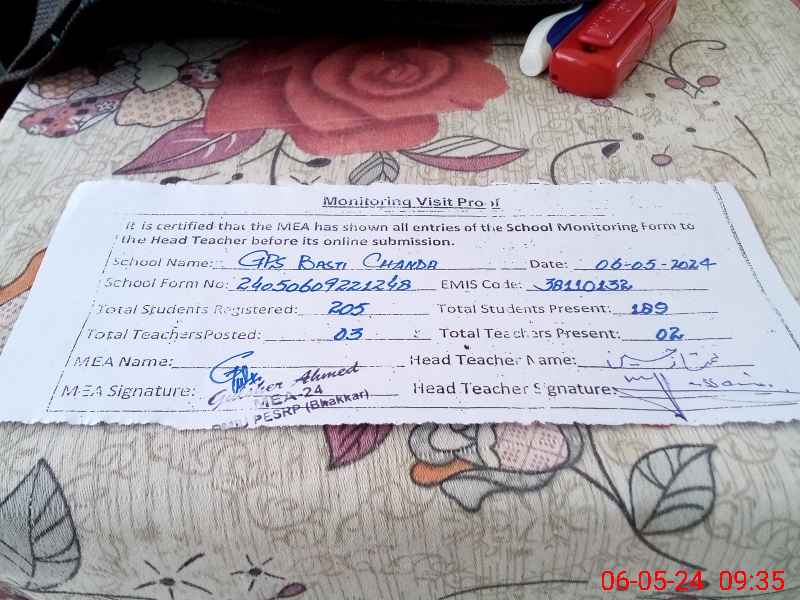 Monitoring Visit Proof
It is certified that the MEA has shown all entries of the School Monitoring Form to
the Head Teacher before its online submission.
School Name: GPS BASTI CHANDA Date: 06-05-2024
School Form No: 24050609221248 EMIS Code: 38110132
Total Students Registered: 205 Total Students Present: 189
Total Teachers Posted: 03 Total Teachers Present: 02
MEA Name: Head Teacher Name: ممتاز حسین
MEA Signature: Ahmed Head Teacher Signature:
MEA-24
PESRP (Bhakkar)
06-05-24 09:35